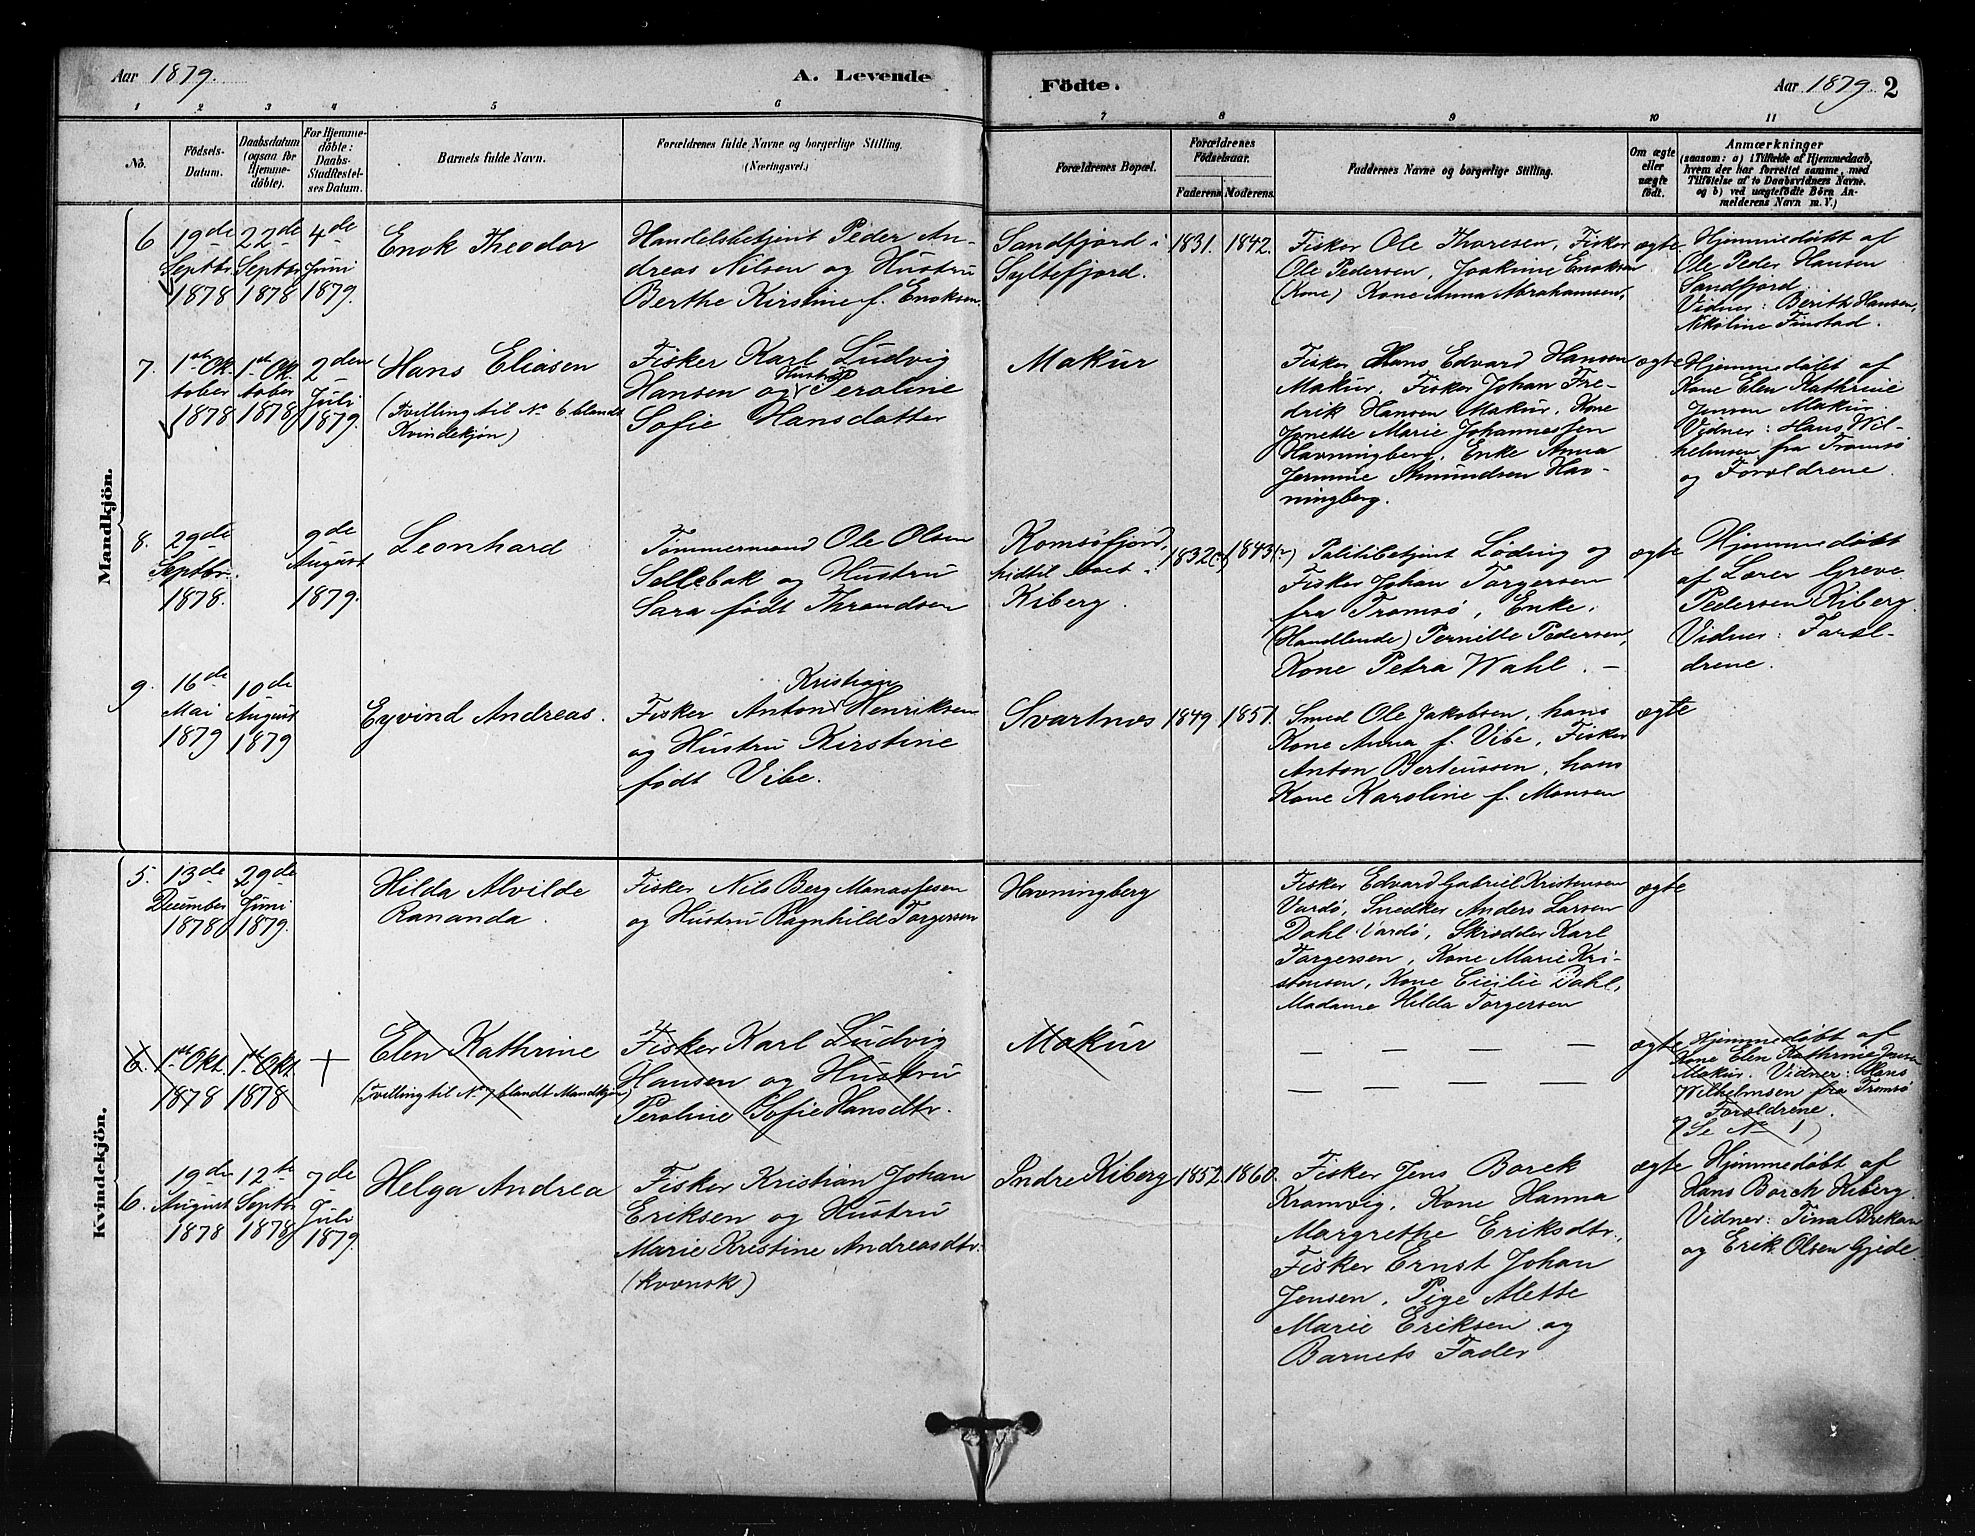 Aar 1879.
A. Levende
Födte.
Aar 1879. 2
1 2 3 4 5 6 7 8 9 10 11
No.
Födsels-
Datum.
Daabsdatum
(ogsaa for
Hjemme-
döbte).
For Hjemme-
döbte:
Daabs-
Stadfæstel-
ses Datum.
Barnets fulde Navn.
Forældrenes fulde Navne og borgerlige Stilling.
(Næringsvei.)
Forældrenes Bopæl.
Forældrenes
Födselsaar.
Faderens. Moderens.
Faddernes Navne og borgerlige Stilling.
Om ægte
eller
uægte
født.
Anmærkninger
(saasom: a) i Tilfælde af Hjemmedaab,
hvem der har forrettet samme, med
Tilföielse af to Daabsvidners Navne.
og b) ved uægtefödte Börn An-
melderens Navn m. V.)
Mandkjön.
6
19de
Septbr
1878
22de
Septbr
1878
4de
Juni
1879.
Enok Theodor
Handelsbetjent Peder An-
dreas Nilsen og Hustru
Berthe Kirstine f. Enoksen.
Sandfjord i
Syltefjord.
1831. 1842.
Fisker Ole Thoresen, Fisker
Ole Pedersen, Joakime Enoksen
(Kone) Kone Anna Abrahamsen,
ægte
Hjemmedøbt af
Ole Peder Hansen
Sandfjord
Vidner: Berith Hansen,
Nikoline Finstad.
7.
1ste Ok
tober
1878
1ste Ok
tober
1878
2den
Juli
1879.
Hans Eliasen
(Tvilling til No 6 blandt
Kvindekjøn)
Fisker Karl Ludvig
Hansen og Hustru Peroline
Sofie Hansdatter
Makur
Fisker Hans Edvard Hansen
Makur, Fisker Johan Fre-
drik Hansen Makur, Kone
Jonette Marie Johannessen
Havningberg, Enke Anna
Jermine Amundsen Hav-
ningberg.
ægte
Hjemmedøbt af
Kone Elen Kathrine
Jensen Makur.
Vidner: Hans Wil-
helmsen fra Tromsø
og Forældrene.
8.
29de
Septbr.
1878.
9de
August
1879.
Leonhard
Tømmermand Ole Olsen
Sellebak og Hustru
Sara født Throndsen
Komsøfjord,
hidtil boet i
Kiberg.
1832(?) 1843(?)
Politibetjent Løding og
Fisker Johan Torgersen
fra Tromsø, Enke,
(Handlende) Pernille Pedersen,
Kone Petra Wahl. —
ægte
Hjemmedøbt
af Lærer Greve
Pedersen Kiberg.
Vidner: Foræl-
drene.
9.
16de
Mai
1879
10de
August
1879
Eyvind Andreas.
Kristian
Fisker Anton Henriksen
og Hustru Kirstine
født Vibe.
Svartnes
1849. 1851.
Smed Ole Jakobsen, hans
Kone Anna f. Vibe, Fisker
Anton Berteussen, hans
Kone Karoline f. Monsen
ægte
Kvindekjön.
5.
13de
December
1878
29de
Juni
1879.
Hilda Alvilde
Rananda.
Fisker Nils Berg Manassesen
og Hustru Ragnhilde Torgersen
Havningberg
Fisker Edvard Gabriel Kristensen
Vardø, Snedker Anders Larsen
Dahl Vardø, Skrædder Karl
Torgersen, Kone Marie Kri-
stensen, Kone Cicilie Dahl,
Madame Hilda Torgersen
ægte
6.
1ste Okt.
1878
1ste Okt
1878
+
Elen Kathrine
(Tvilling til No 7 blandt Mandkjøn)
Fisker Karl Ludvig
Hansen og Hustru
Peroline Sofie Hansdtr.
Makur
— — — — —
— — — — —
ægte
Hjemmedøbt af
Kone Elen Kathrine Jensen
Makur. Vidner: Hans
Wilhelmsen fra Tromsø
og Forældrene.
(Se No 1)
6.
19de
August
1878
12te
Septbr
1878
7de
Juli
1879.
Helga Andrea
Fisker Kristian Johan
Eriksen og Hustru
Marie Kristine Andreasdtr.
(kvænsk)
Indre Kiberg
1852. 1860.
Fisker Jens Borck
Kramvig, Kone Hanna
Margrethe Eriksdtr.,
Fisker Ernst Johan
Jensen, Pige Alette
Marie Eriksen og
Barnets Fader
ægte
Hjemmedøbt af
Hans Borch Kiberg.
Vidner: Tina Brekan
og Erik Olsen Gjede.